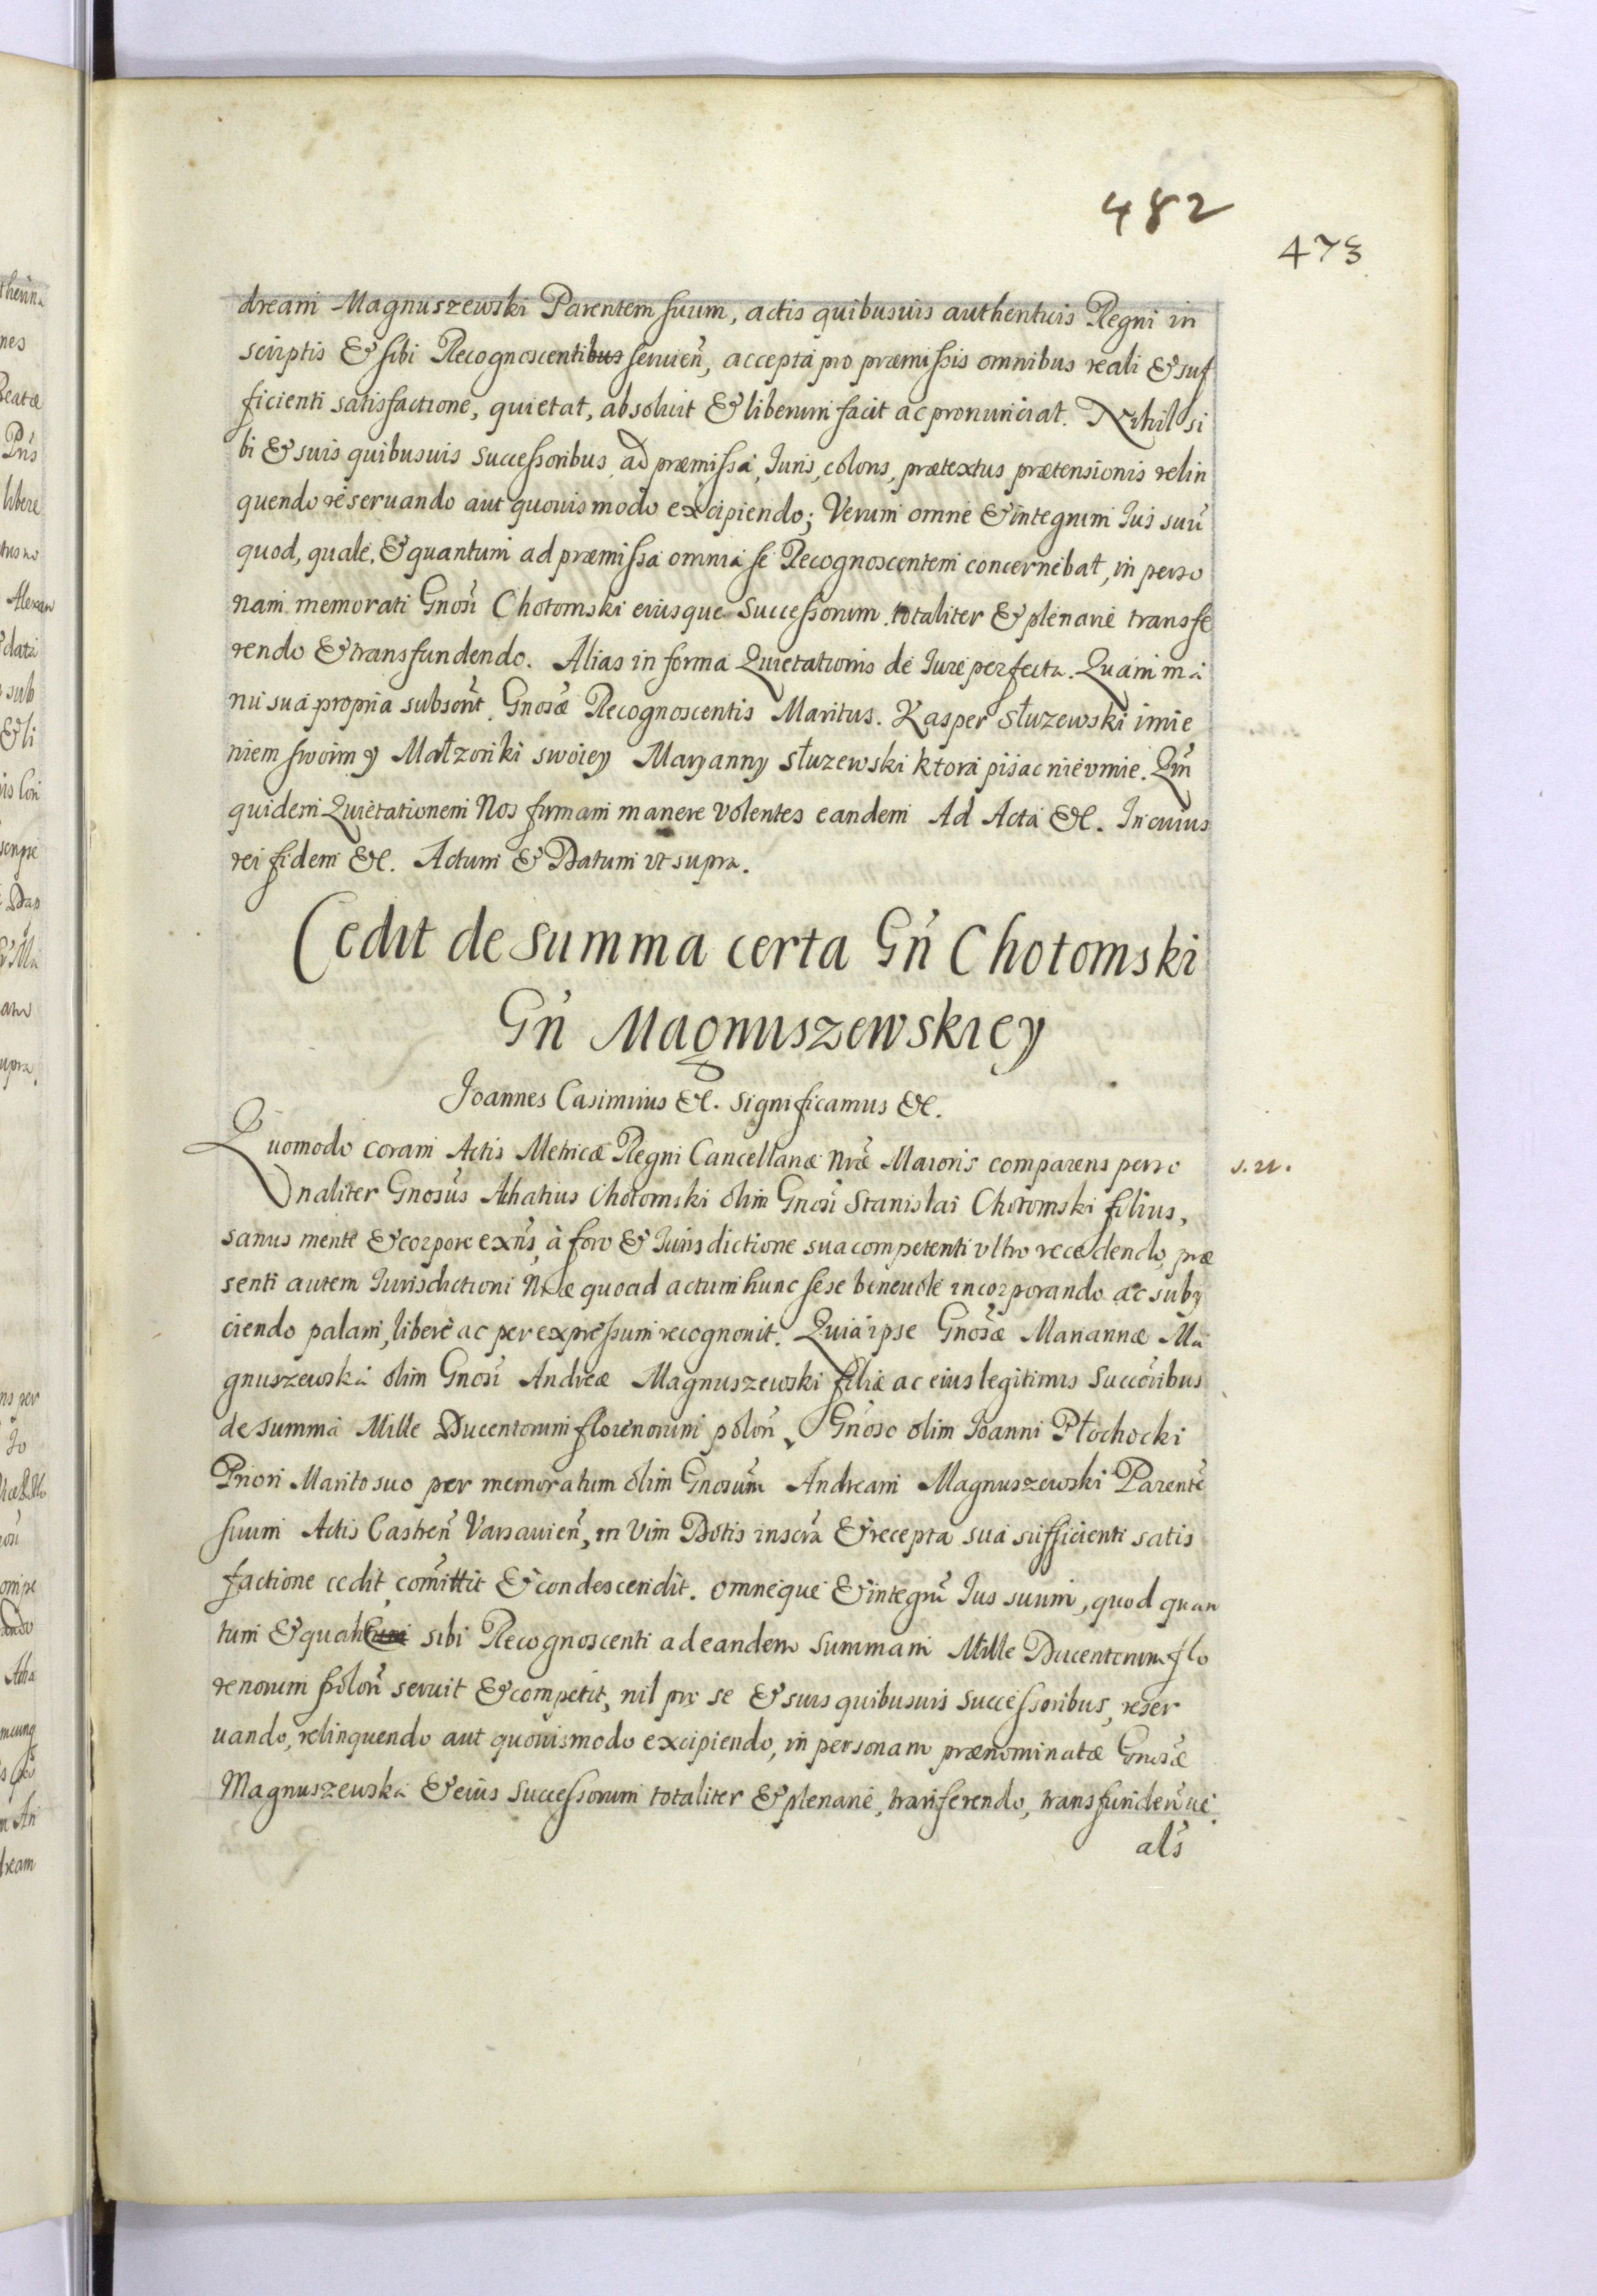 482
473
dream Magnuszewski Parentem suum, actis quibusuis authenticis Regni in
scriptis & sibi Recognoscentibus seruien̄, accepta pro præmissis omnibus reali & suf
ficienti satisfactione, quietat, absoluit & liberum facit ac pronunciat. Nihil si
bi & suis quibusuis successoribus ad præmissa, Iuris, coloris, prætextus prætensionis relin
quendo reseruando aut quouismodo excipiendo; Verum omne & integrum Ius suū
quod, quale, & quantum ad præmissa omnia se Recognoscentem concernebat, in perso
nam memorati Gnosi Chotomski eiusque successorum totaliter & plenarie transfe
rendo & transfundendo. Alias in forma Quietationis de Iure perfecta. Quam ma
nu sua propria subscrīt Gnosæ Recognoscentis Maritus. Kasper Słuzewski imie
niem swoim y Małzonki swoiey Maryanny Słuzewski ktora pisac nie vmie. Qm̄
quidem Quietationem Nos firmam manere volentes eandem Ad Acta &c. In cuius
rei fidem &c. Actum & Datum vt supra.
Cedit de summa certa Gn̄ Chotomski
Gn̄ Magnuszewskiey
Joannes Casimirus &c. significamus &c.
Quomodo coram Actis Metricæ Regni Cancellariæ Nræ Maioris comparens perso
s. 21.
naliter Gnosus Achatius Chotomski olim Gnosi Stanislai Chotomski filius,
sanus mente & corpore exn̄s, à foro & Iurisdictione sua competenti vltro recedendo, præ
senti autem Iurisdictioni Nræ quoad actum hunc sese beneuole incorporando ac subÿ
ciendo palam, libere ac per expressum recognouit. Quia ipse Gnosæ Mariannæ Ma
gnuszewska olim Gnosi Andreæ Magnuszewski filiæ ac eius legitimis Succōribus
de summa Mille Ducentorum florenorum polon̄, Gnoso olim Joanni Płochocki
Priori Marito suo per memoratum olim Gnosum Andream Magnuszewski Parentē
suum Actis Castren̄ Varsauien̄, in Vim Dotis inscrā & recepta sua sufficienti satis
factione cedit, com̄ittit & condescendit. omneque & integrū Ius suum, quod quan
tum & quale sibi Recognoscenti ad eandem summam Mille Ducentorum flo
renorum polon̄ seruit & competit, nil pro se & suis quibusuis successoribus, reser
uando, relinquendo aut quouismodo excipiendo, in personam prænominatæ Gnosæ
Magnuszewska & eius successorum totaliter & plenarie, transferendo, transfunden̄ue
als̄